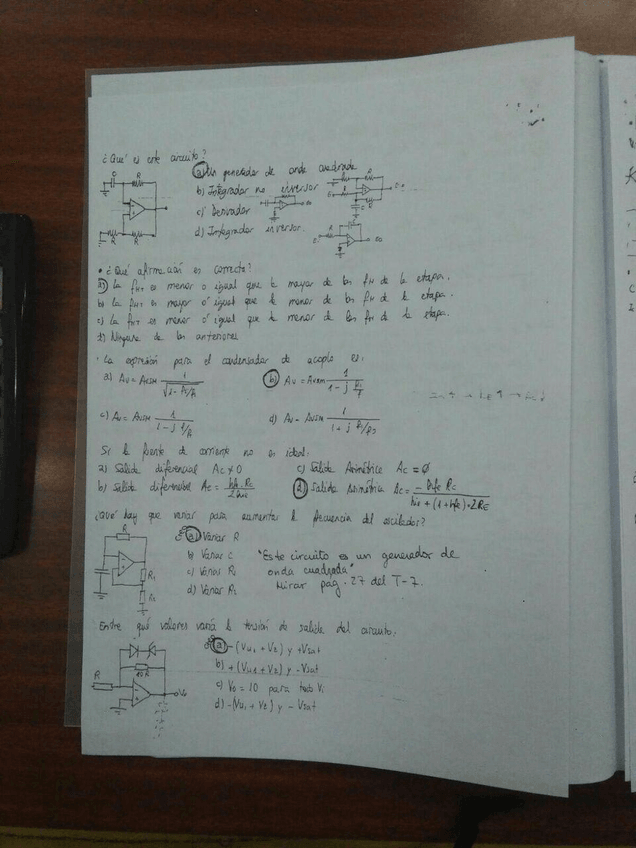 ¿Qué es este circuito?
a) Un generador de onda cuadrada
b) Integrador no inversor
c) Derivador
d) Integrador inversor.
• ¿Qué afirmación es correcta?
a) La fHT es menor o igual que la mayor de las fH de la etapa.
b) La fHT es mayor o igual que la menor de las fH de la etapa.
c) La fHT es menor o igual que la menor de las fH de la etapa.
d) Ninguna de las anteriores
· La expresión para el condensador de acoplo es:
a) Av = AVSM 1
b) Av = AVSM 1 / 1 - j
c) Av = AVSM 1 / 1 - j
d) Av = AVSM 1 / 1 + j
Si la fuente de corriente no es ideal:
a) Salida diferencial Ac ≠ 0
c) Salida Asimétrica Ac = 0
b) Salida diferencial Ac =
d) Salida Asimétrica Ac = - hfe Rc / hie + (1 + hfe) · 2RE
¿Qué hay que variar para aumentar la frecuencia del oscilador?
a) Variar R
b) Variar C
c) Variar R1
d) Variar R2
"Este circuito es un generador de
onda cuadrada"
Mirar pag. 27 del T-7.
Entre qué valores varía la tensión de salida del circuito:
a) - (Vu1 + Vz) y +Vsat
b) + (Vu1 + Vz) y - Vsat
c) Vo = 10 para todo Vi
d) - (Vu1 + Vz) y - Vsat
R
10R
Vo